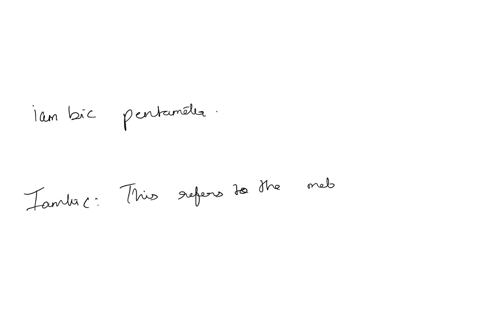 iambic pentameter.
Iambic: This refers to the met